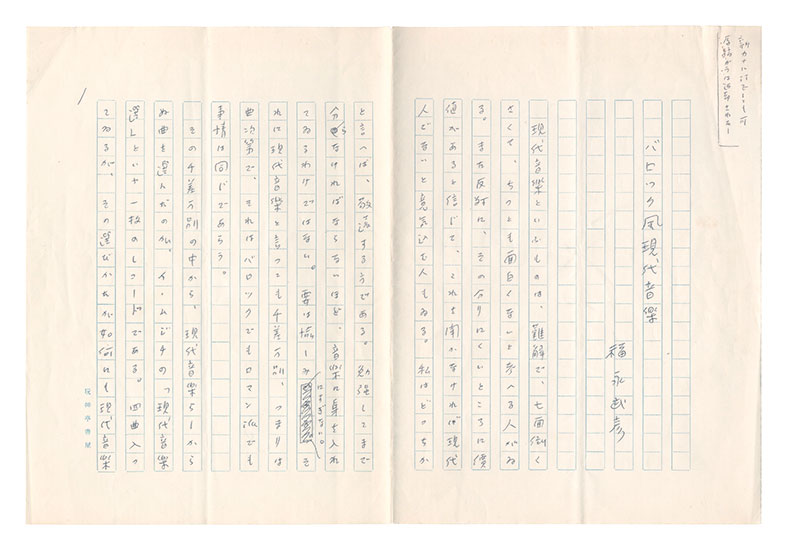 新カナに訂正しても可
バロック風現代音楽
福永武彦
現代音楽といふものは、難解で、七面倒く
さくて、ちつとも面白くないと考へる人がゐ
る。また反対に、その分りにくいところに價
値があると信じて、これを聞かなければ現代
人でないと意気込む人もゐる。私はどつちか
と言へば、敬遠する方である。勉強してまで
分らなければならないほど、音楽に身を入れ
てゐるわけではない。要は愉しみにすぎない。そ
れに現代音楽と言つても千差万別、つまりは
曲次第で、それはバロックでもロマン派でも
事情は同じであらう。
その千差万別の中から、現代音楽らしから
ぬ曲を選んだのが、イ・ムジチの「現代音楽
選」といふ一枚のレコードである。四曲入つ
てゐるが、その選びかたが如何にも現代音楽
1